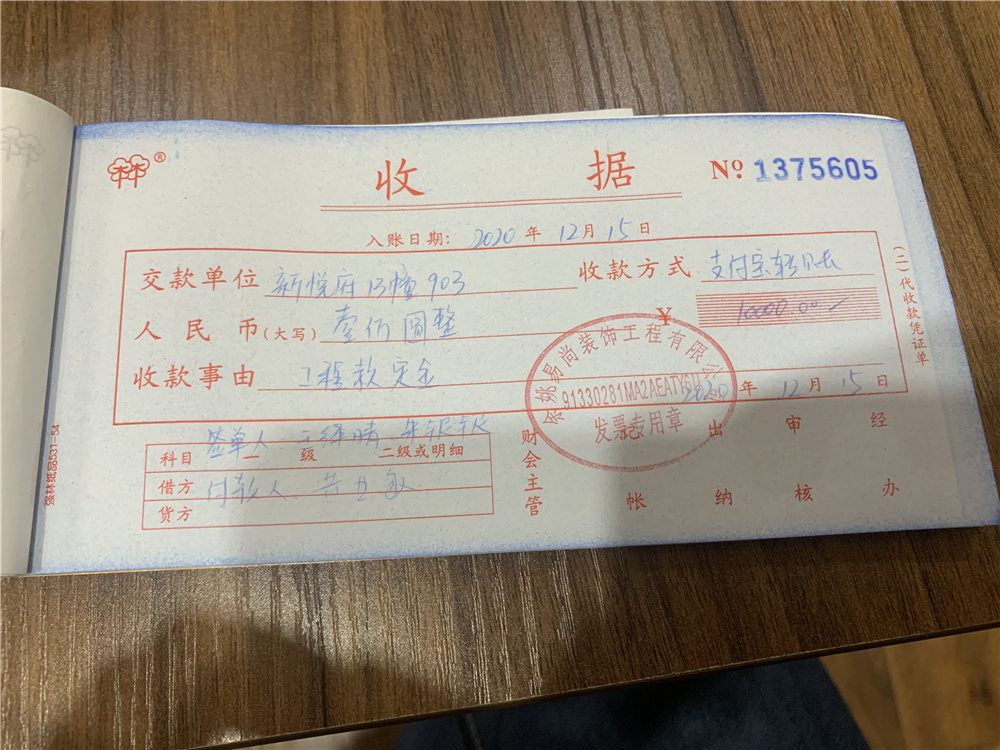 收 据 Nº 1375605
入账日期: 2020 年 12 月 15 日
交款单位 新悦府13幢903 收款方式 支付宝转
人民币(大写) 壹 圆整 ¥ 10000.00
收款事由 工程款定金
2020 年 12 月 15 日
余姚易尚装饰工程有限公
91330281MA2AEATY
发票专用章
(二)代收款凭证单
签单人
科目 一 级 二级或明细
借方 付款人
货方
财会主管 出 审 经
帐 纳 核 办
强林纸品531-54